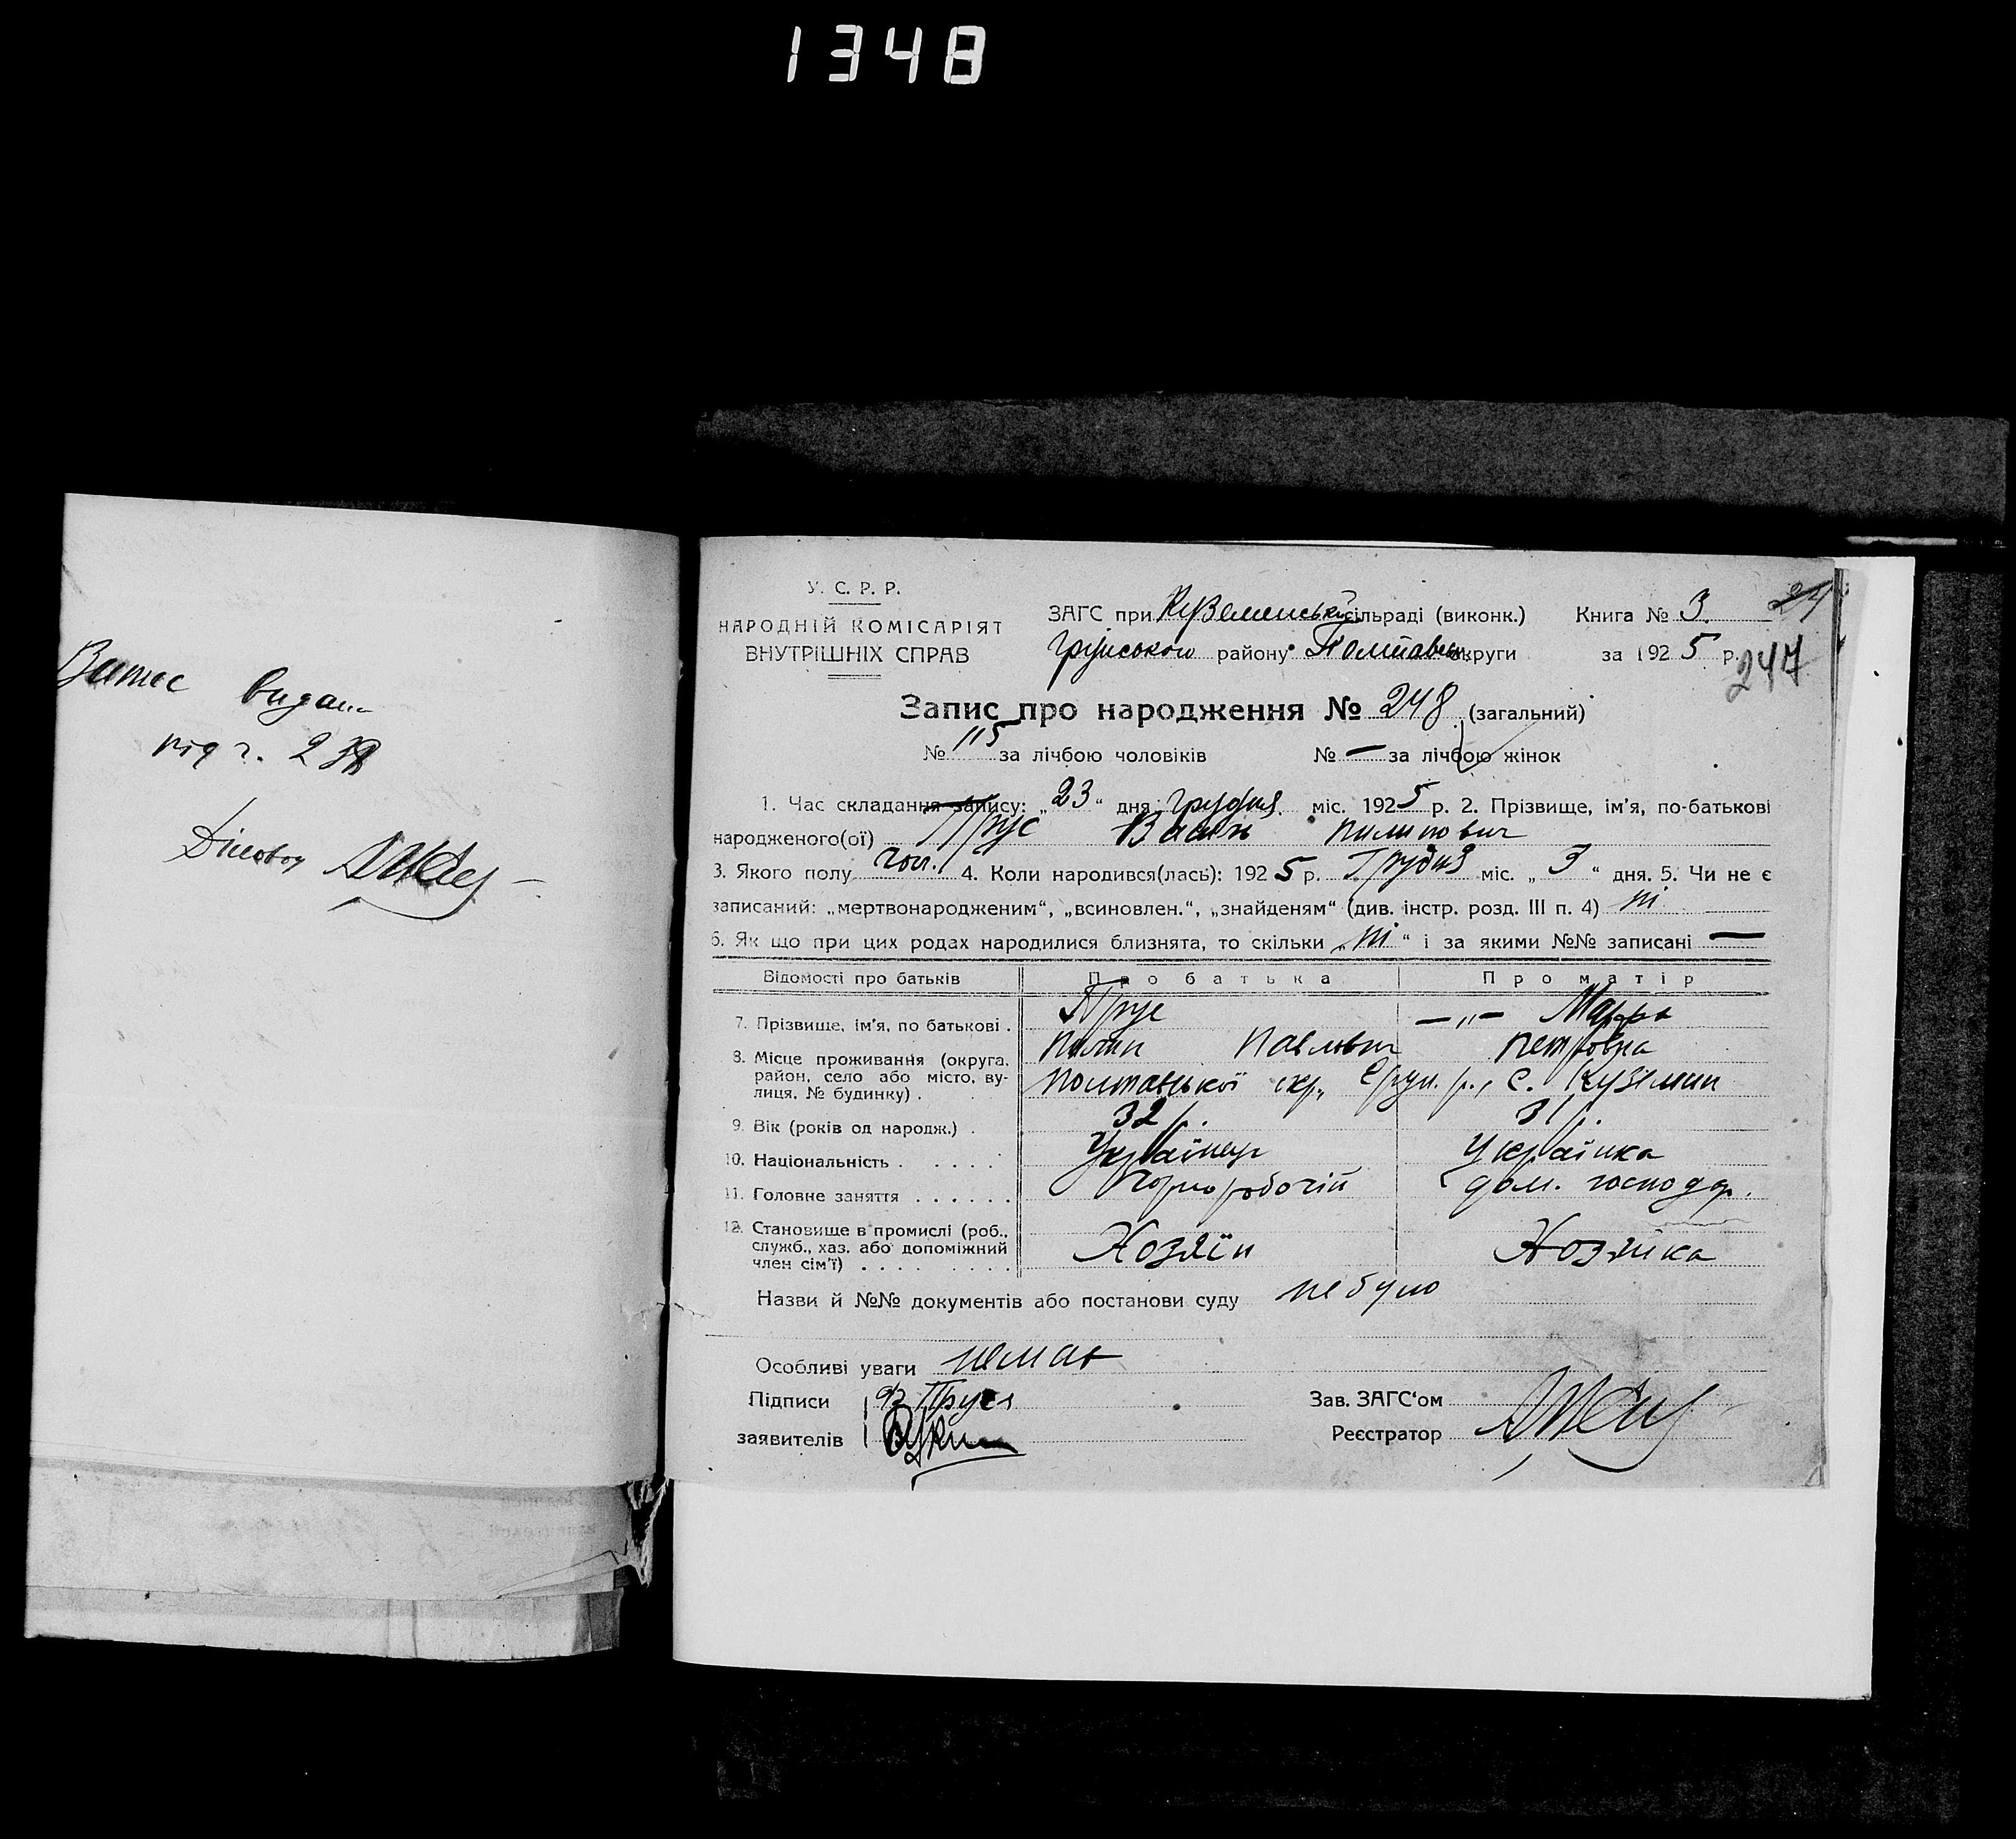 1348
Витяг видан
під ч. 238
Діловод
У. С. Р. Р.
НАРОДНІЙ КОМІСАРІЯТ
ВНУТРІШНІХ СПРАВ
ЗАГС при Куземенській сільраді (виконк.)
Грунського району Полтавськ. округи
Книга № 3.
за 1925 р.
247
Запис про народження № 248 (загальний)
№ 115 за лічбою чоловіків № — за лічбою жінок
1. Час складання запису: „23“ дня грудня міс. 1925 р. 2. Прізвище, ім'я, по-батькові
народженого(ої) Прус Василь Пилипович
3. Якого полу чол. 4. Коли народився(лась): 1925 р. Грудня міс. „3“ дня. 5. Чи не є
записаний: „мертвонародженим“, „всиновлен.“, „знайденям“ (див. інстр. розд. III п. 4) ні
6. Як що при цих родах народилися близнята, то скільки „ні“ і за якими №№ записані —
Відомості про батьків Про батька Про матір
7. Прізвище, ім'я, по батькові . Прус Пилип Павлович —„— Петровна
8. Місце проживання (округа, район, село або місто, вулиця, № будинку) . Полтавської окр., Грун. р., с. Куземин
9. Вік (років од народж.) . 32 р. 31 р.
10. Національність . . . . . Українець Українка
11. Головне заняття . . . . . . Чорноробочій дом. господар.
12. Становище в промислі (роб., служб., хаз. або допоміжний член сім'ї) . . . . . . . . Хозяїн Хозяйка
Назви й №№ документів або постанови суду не було
Особливі уваги немає
Підписи Прус
заявителів
Зав. ЗАГС‘ом
Реєстратор